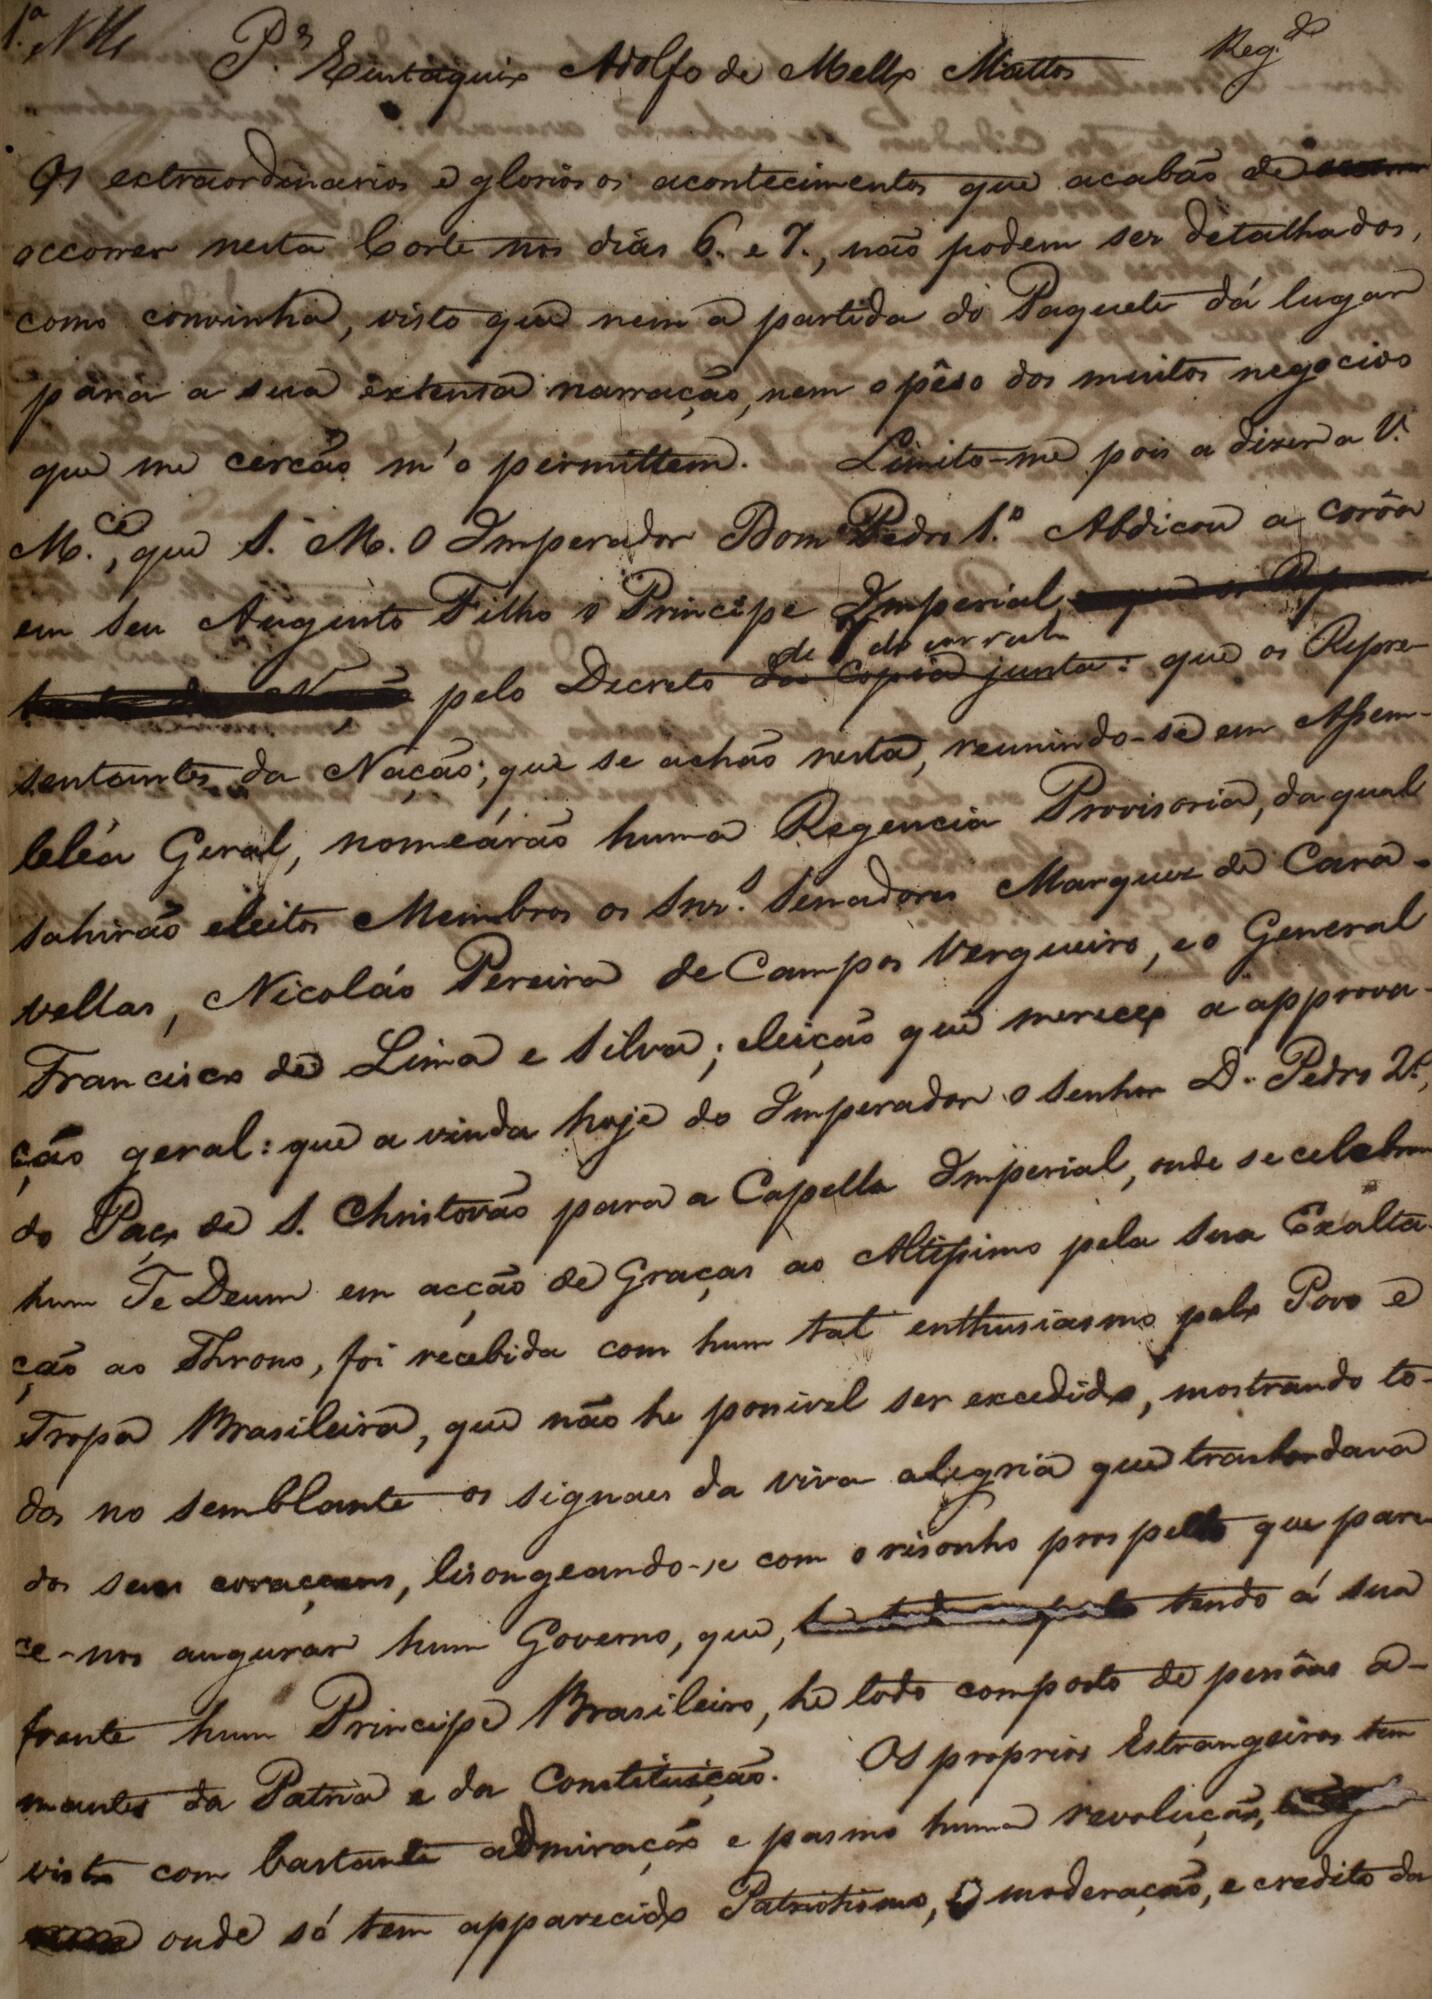 1.ª N
P.ª Eustaquio Adolfo de Mello Mattos Reg.do
Os extraordinarios e gloriosos acontecimentos que acabão de
occorrer nesta Corte nos dias 6. e 7., não podem ser detalhados,
como convinha, visto que nem a partida do Paquete dá lugar
para a sua extensa narração, nem o pêso dos muitos negocios
que me cercão m'o permittem. Limito-me pois a dizer a V.
M.ce, que S. M. O Imperador Dom Pedro 1.º Abdicou a corôa
em seu Augusto Filho o Principe Imperial,
de 7 do corrente
pelo Decreto da Copia junta: que os Repre-
sentantes da Nação, que se achão nesta, reunindo-se em Assem-
bléa Geral, nomeárão huma Regencia Provisoria, da qual
sahirão eleitos Membros os Snr.s Senadores Marquez de Cara-
vellas, Nicoláo Pereira de Campos Vergueiro, e o General
Francisco de Lima e Silva; eleição que mereceo a approva-
ção geral: que a vinda hoje do Imperador o Senhor D. Pedro 2.º,
do Paço de S. Christovão para a Capella Imperial, onde se celebrou
hum Te Deum em acção de Graças ao Altissimo pela sua Exalta-
ção ao Throno, foi recebida com hum tal enthusiasmo pelo Povo e
Tropa Brasileira, que não he possivel ser excedido, mostrando to-
dos no semblante os signaes da viva alegria que trasbordava
dos seus corações, lisongeando-se com o risonho prospecto que pare-
ce-nos augurar hum Governo, que, tendo á sua
frente hum Principe Brasileiro, he todo composto de pessôas a-
mantes da Patria e da Constituição. Os proprios Estrangeiros tem
visto com bastante admiração e pasmo huma revolução,
onde só tem apparecido Patriotismo, moderação, e credito da